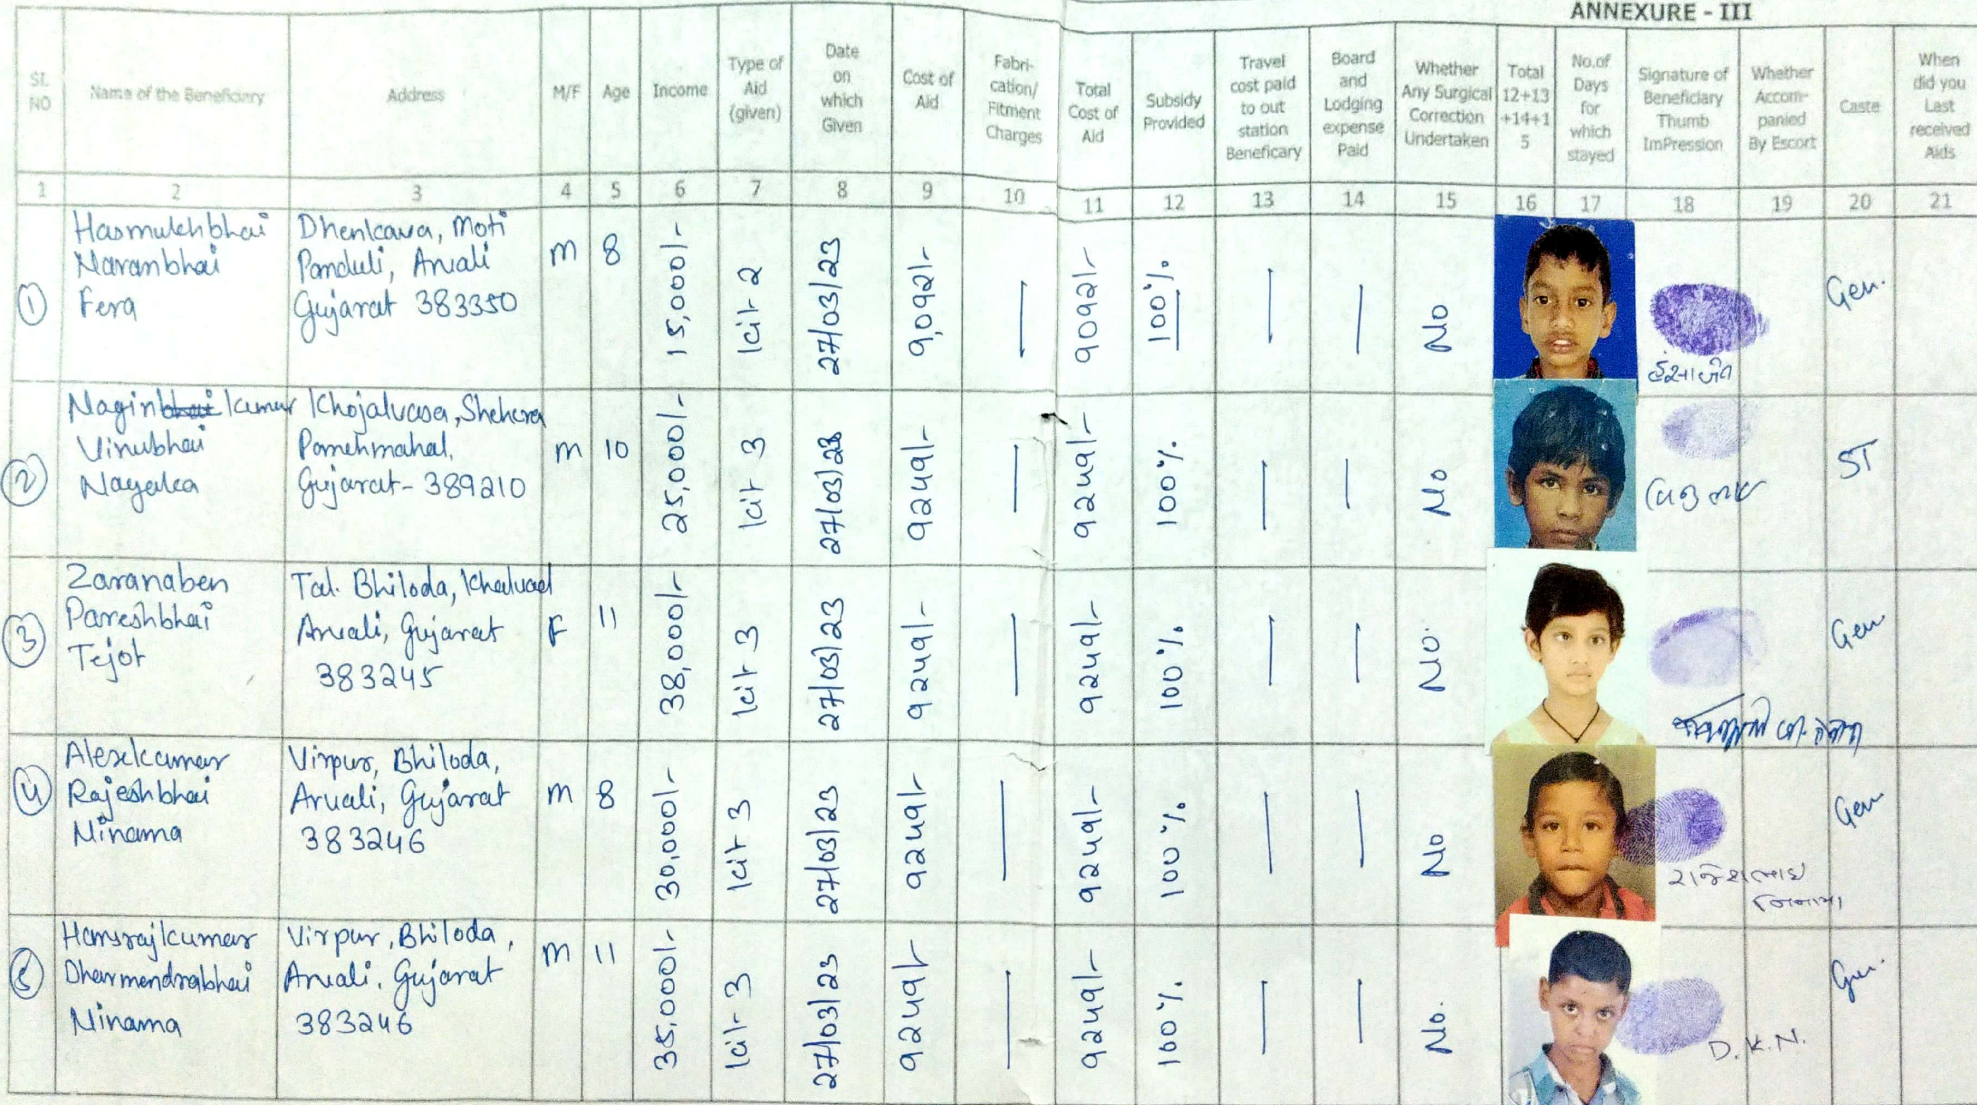 ANNEXURE - III
SL NO
Name of the Beneficiary
Address
M/F
Age
Income
Type of Aid (given)
Date on which Given
Cost of Aid
Fabri-cation/ Fitment Charges
Total Cost of Aid
Subsidy Provided
Travel cost paid to out station Beneficary
Board and Lodging expense Paid
Whether Any Surgical Correction Undertaken
Total 12+13 +14+1 5
No.of Days for which stayed
Signature of Beneficiary Thumb ImPression
Whether Accom-panied By Escort
Caste
When did you Last received Aids
1 2 3 4 5 6 7 8 9 10 11 12 13 14 15 16 17 18 19 20 21
1 Hasmukhbhai Naranbhai Fera
Dhenkava, Moti Panduli, Arvali Gujarat 383350
M 8 15,000/- kit 2 27/03/23 9,092/- — 9092/- 100% — — No Gen.
2 Naginkumar Vinubhai Nayaka
Khojalvasa, Shehera Panchmahal, Gujarat- 389210
M 10 25,000/- kit 3 27/03/23 9249/- — 9249/- 100% — — No ST
3 Zaranaben Pareshbhai Tejot
Tal. Bhiloda, Khalvad Arvali, Gujarat 383245
F 11 38,000/- kit 3 27/03/23 9249/- — 9249/- 100% — — No. Gen
4 Alexkumar Rajeshbhai Ninama
Virpur, Bhiloda, Arvali, Gujarat 383246
M 8 30,000/- kit 3 27/03/23 9249/- — 9249/- 100% — — No Gen
રાજેશભાઇ
નિનામા
5 Hansrajkumar Dharmendrabhai Ninama
Virpur, Bhiloda, Arvali, Gujarat 383246
M 11 35,000/- kit- 3 27/03/23 9249/- — 9249/- 100% — — No. Gen.
D.K.N.